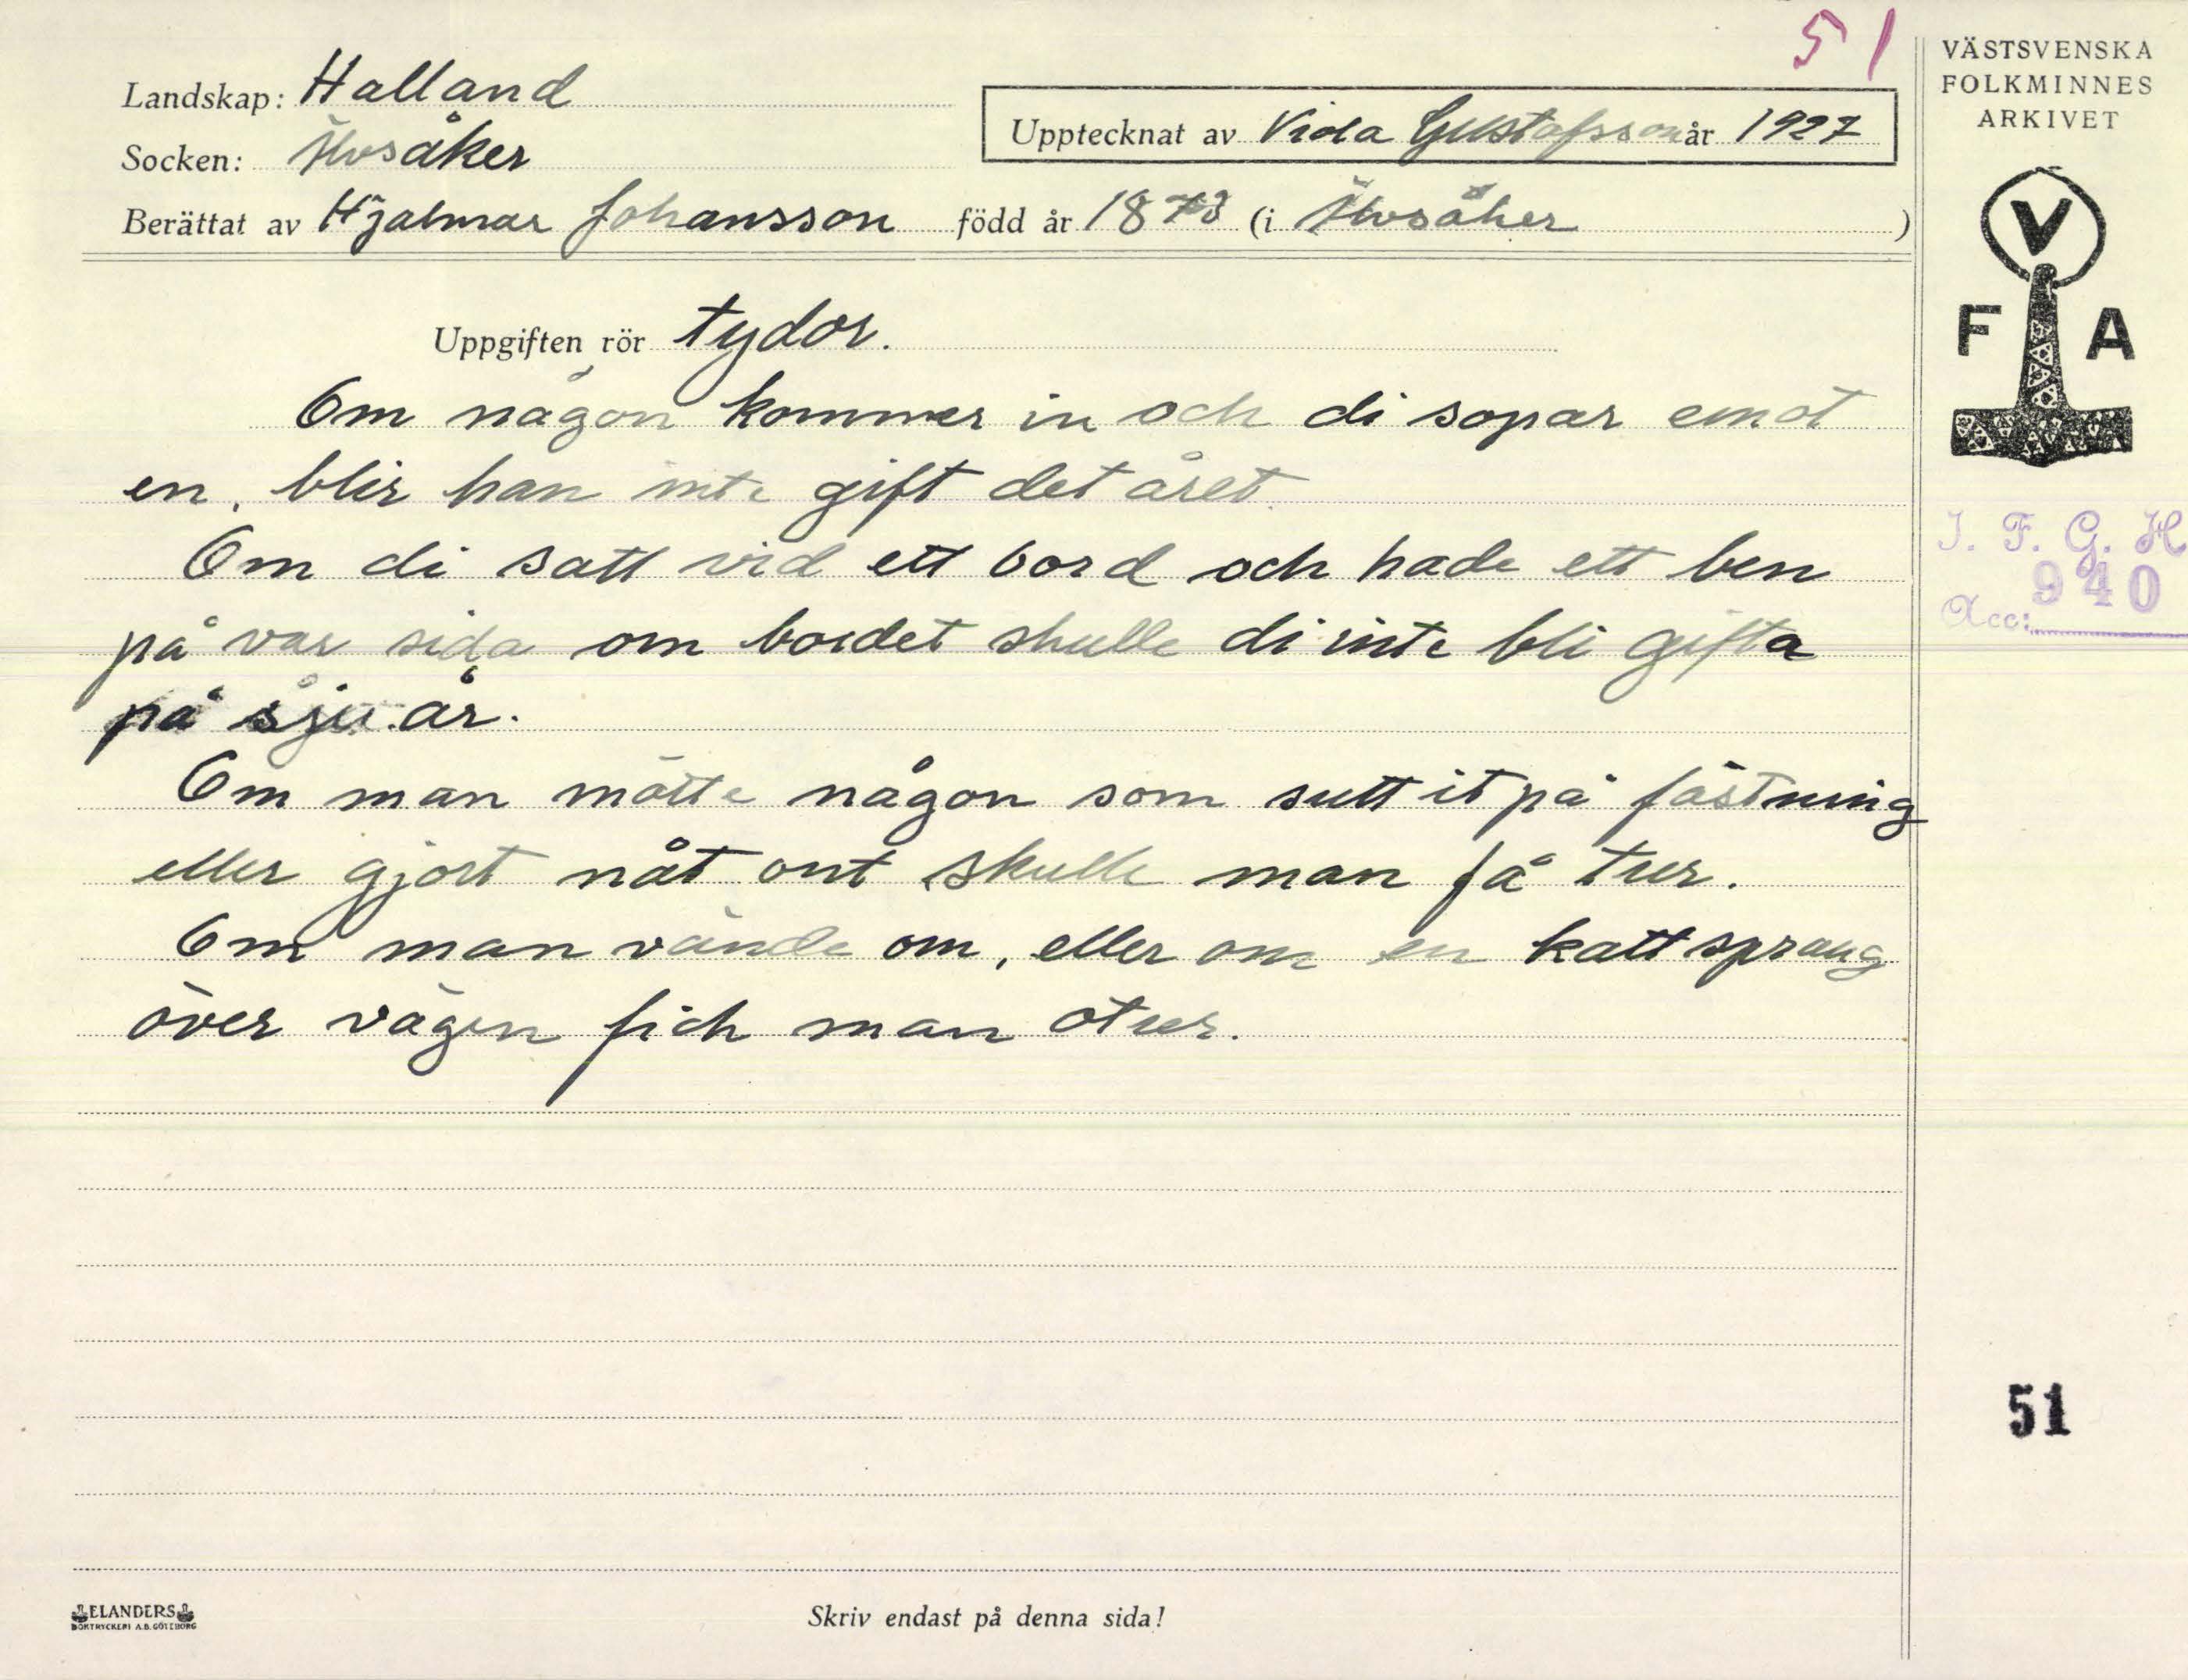 51
Landskap: Halland
Socken: Älvsåker
Upptecknat av Viola Gustafsson år 1927
Berättat av Hjalmar Johansson född år 1873 (i Älvsåker)
VÄSTSVENSKA
FOLKMINNES
ARKIVET
V
F A
Uppgiften rör tydor.
Om någon kommer in och di sopar emot
en, blir han inte gift det året.
Om di satt vid ett bord och hade ett ben
på var sida om bordet skulle di inte bli gifta
på sju år.
Om man mötte någon som suttit på fästning
eller gjort nåt ont skulle man få tur.
Om man vände om, eller om en katt sprang
över vägen fick man otur.
I. F. G. H
940
Acc:
51
ELANDERS
BOKTRYCKERI A.B. GÖTEBORG
Skriv endast på denna sida!